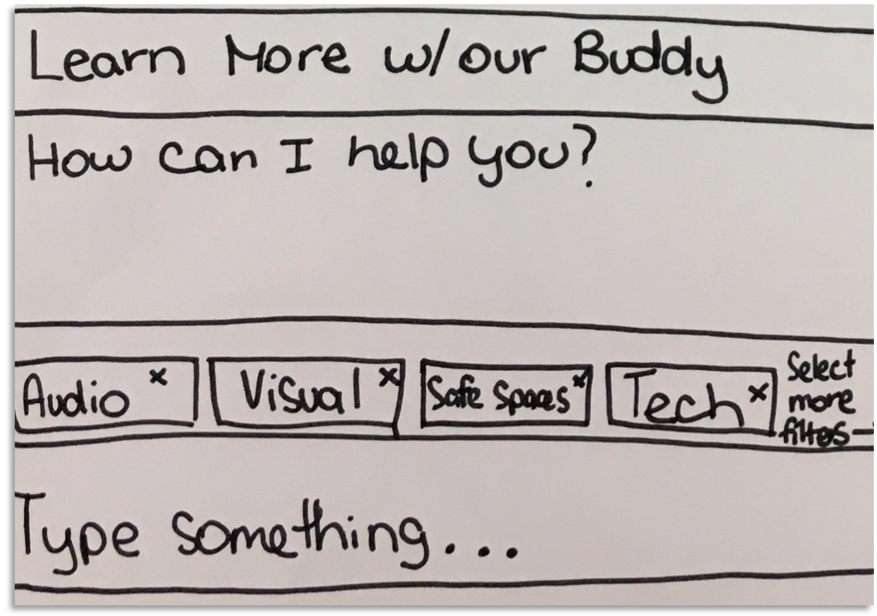 Learn More w/our Buddy
How can I help you?
Audio x
Visual x
Safe Spaces x
Tech x
Select
more
filtes
Type something...